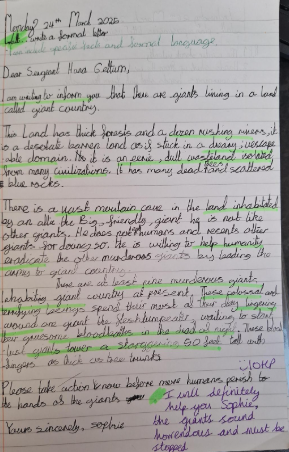 Monday 24th March 2025
Write a formal letter
I can write speech and formal language.
Dear Sergeant Huna
I am writing to inform you that there are giants living in a land
called giant country.
This Land has thick forests and a dozen rushing rivers, it
is a desolate barren land as if stuck in a dreary,
domain. it is an eerie, dull wasteland isolated
from many civilizations. It has many dead trees and scattered
blue rocks.
There is a vast mountain cave in the land inhabited
by an the Big, friendly, giant he is not like
other giants. He does not humans and resents other
giants for doing so. He is willing to help humanity
eradicate the other murderous giants by leading the
to giant country.
There are at least nine murderous giants
inhabiting giant country at present, These and
terrifying beings spend their most at their lingering
around are great, waiting to
gruesome in the dead of night. These
giants tower a staggering 50 feet tall with
fingers as thick as tree trunks
Please take action know before more humans perish to
the hands of the giants
Yours sincerely, sophie
I will definitely
help you Sophie,
the giants sound
horrendous and must be
stopped